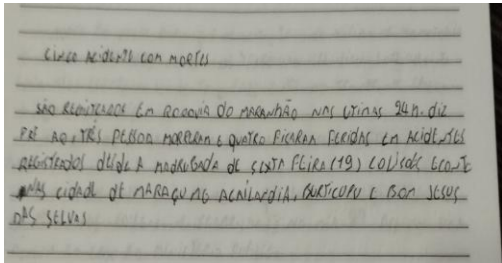 CINCO ACIDENTE COM MORTES
SÃO REGISTRADOS EM RODOVIA DO MARANHÃO NAS UTIMAS 24H. DIZ
PRF AO, TRÊS PESSOA MORRERAM E QUATRO FICARAM FERIDAS EM ACIDENTES
REGISTRADOS DESDE A MADRUGADA DE SEXTA FEIRA (19)
NAS CIDADE DE MARAÇUME AÇAILANDIA, BURTICUPU E BOM JESUS
DAS SELVAS